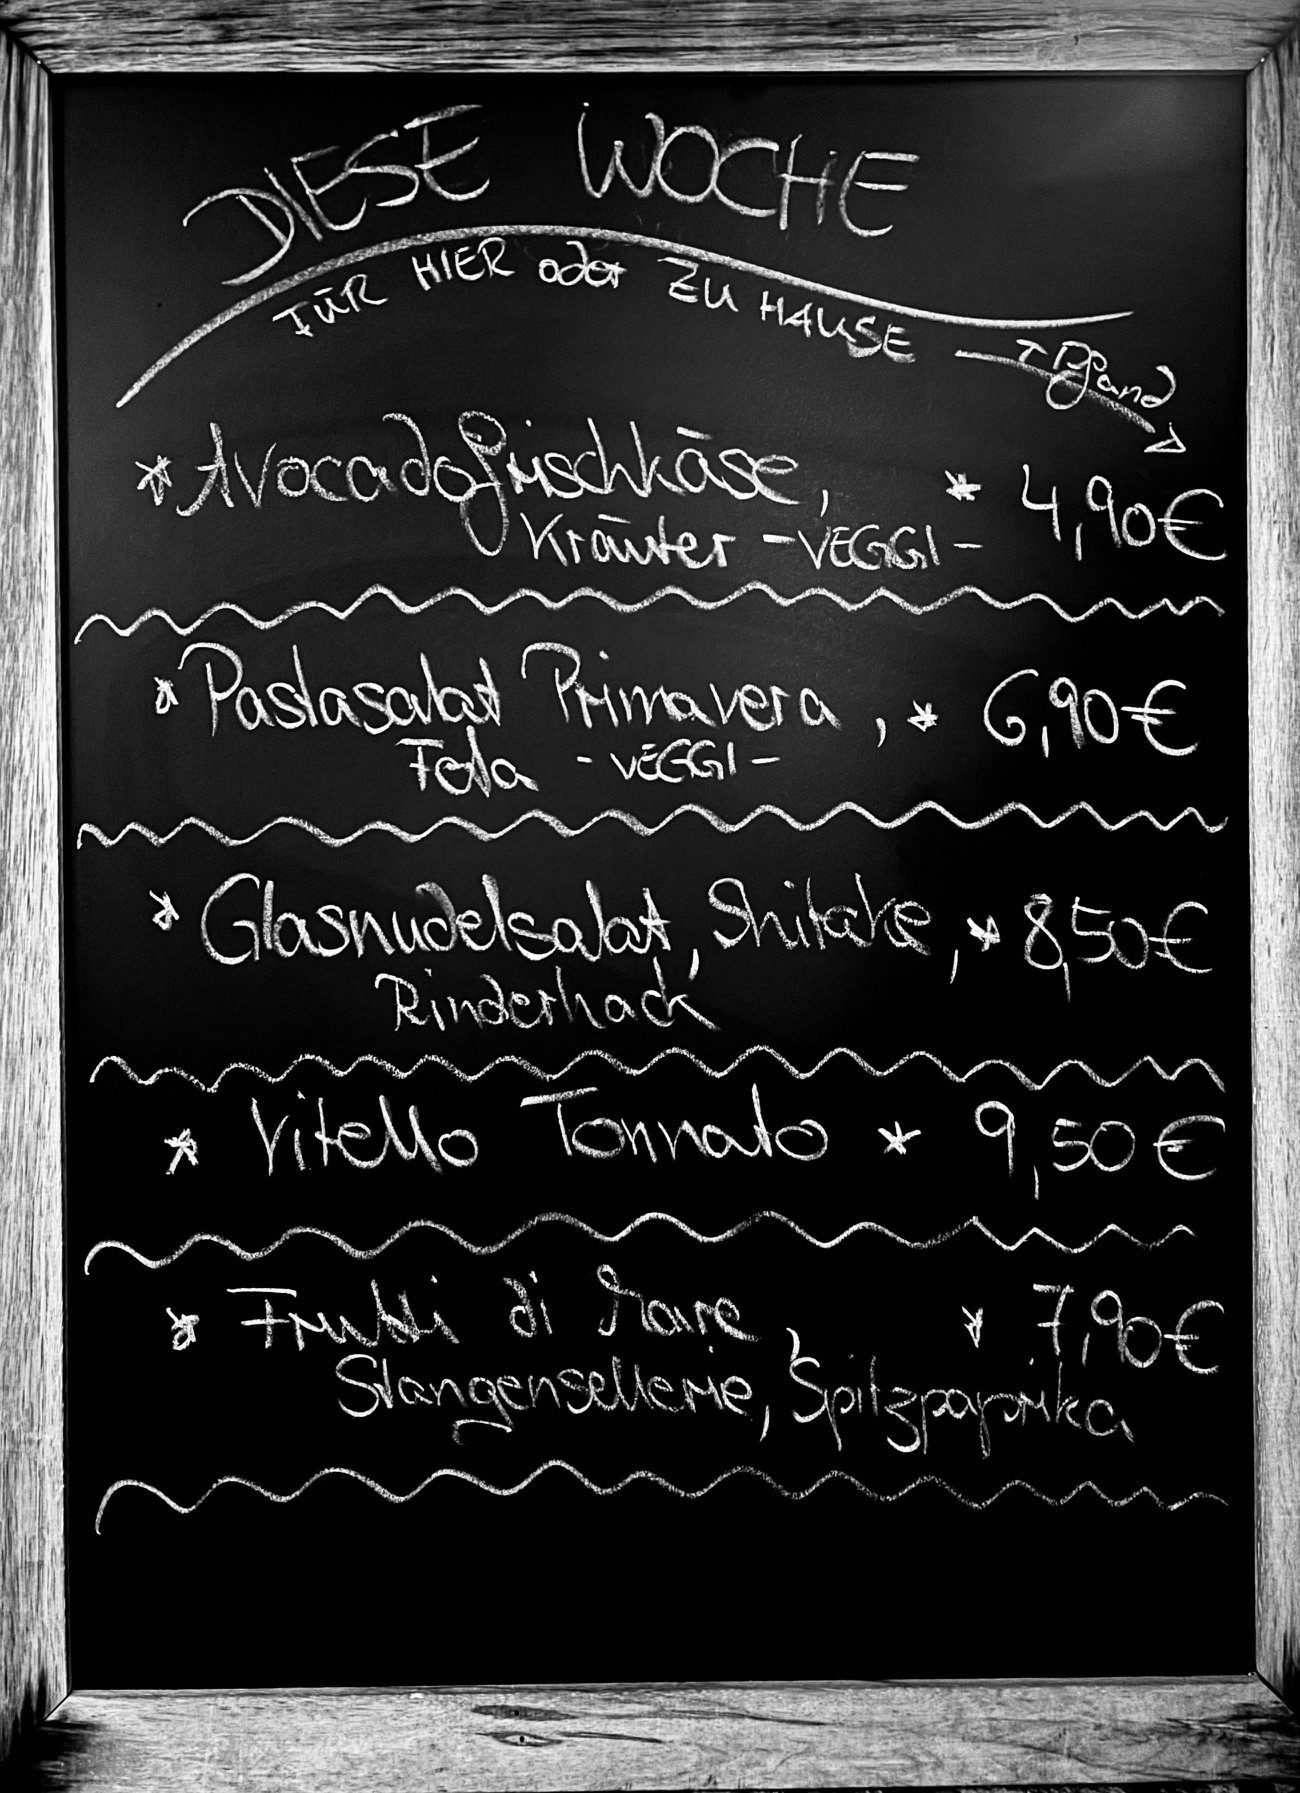 DIESE WOCHE
FÜR HIER oder ZU HAUSE + Pfand
* Avocadofrischkäse, * 4,90€
Kräuter - VEGGI -
* Pastasalat Primavera, * 6,90€
Feta - VEGGI -
* Glasnudelsalat, Shitake, * 8,50€
Rinderhack
* Vitello Tonnato * 9,50€
* Frutti di Mare, * 7,90€
Stangensellerie, Spitzpaprika